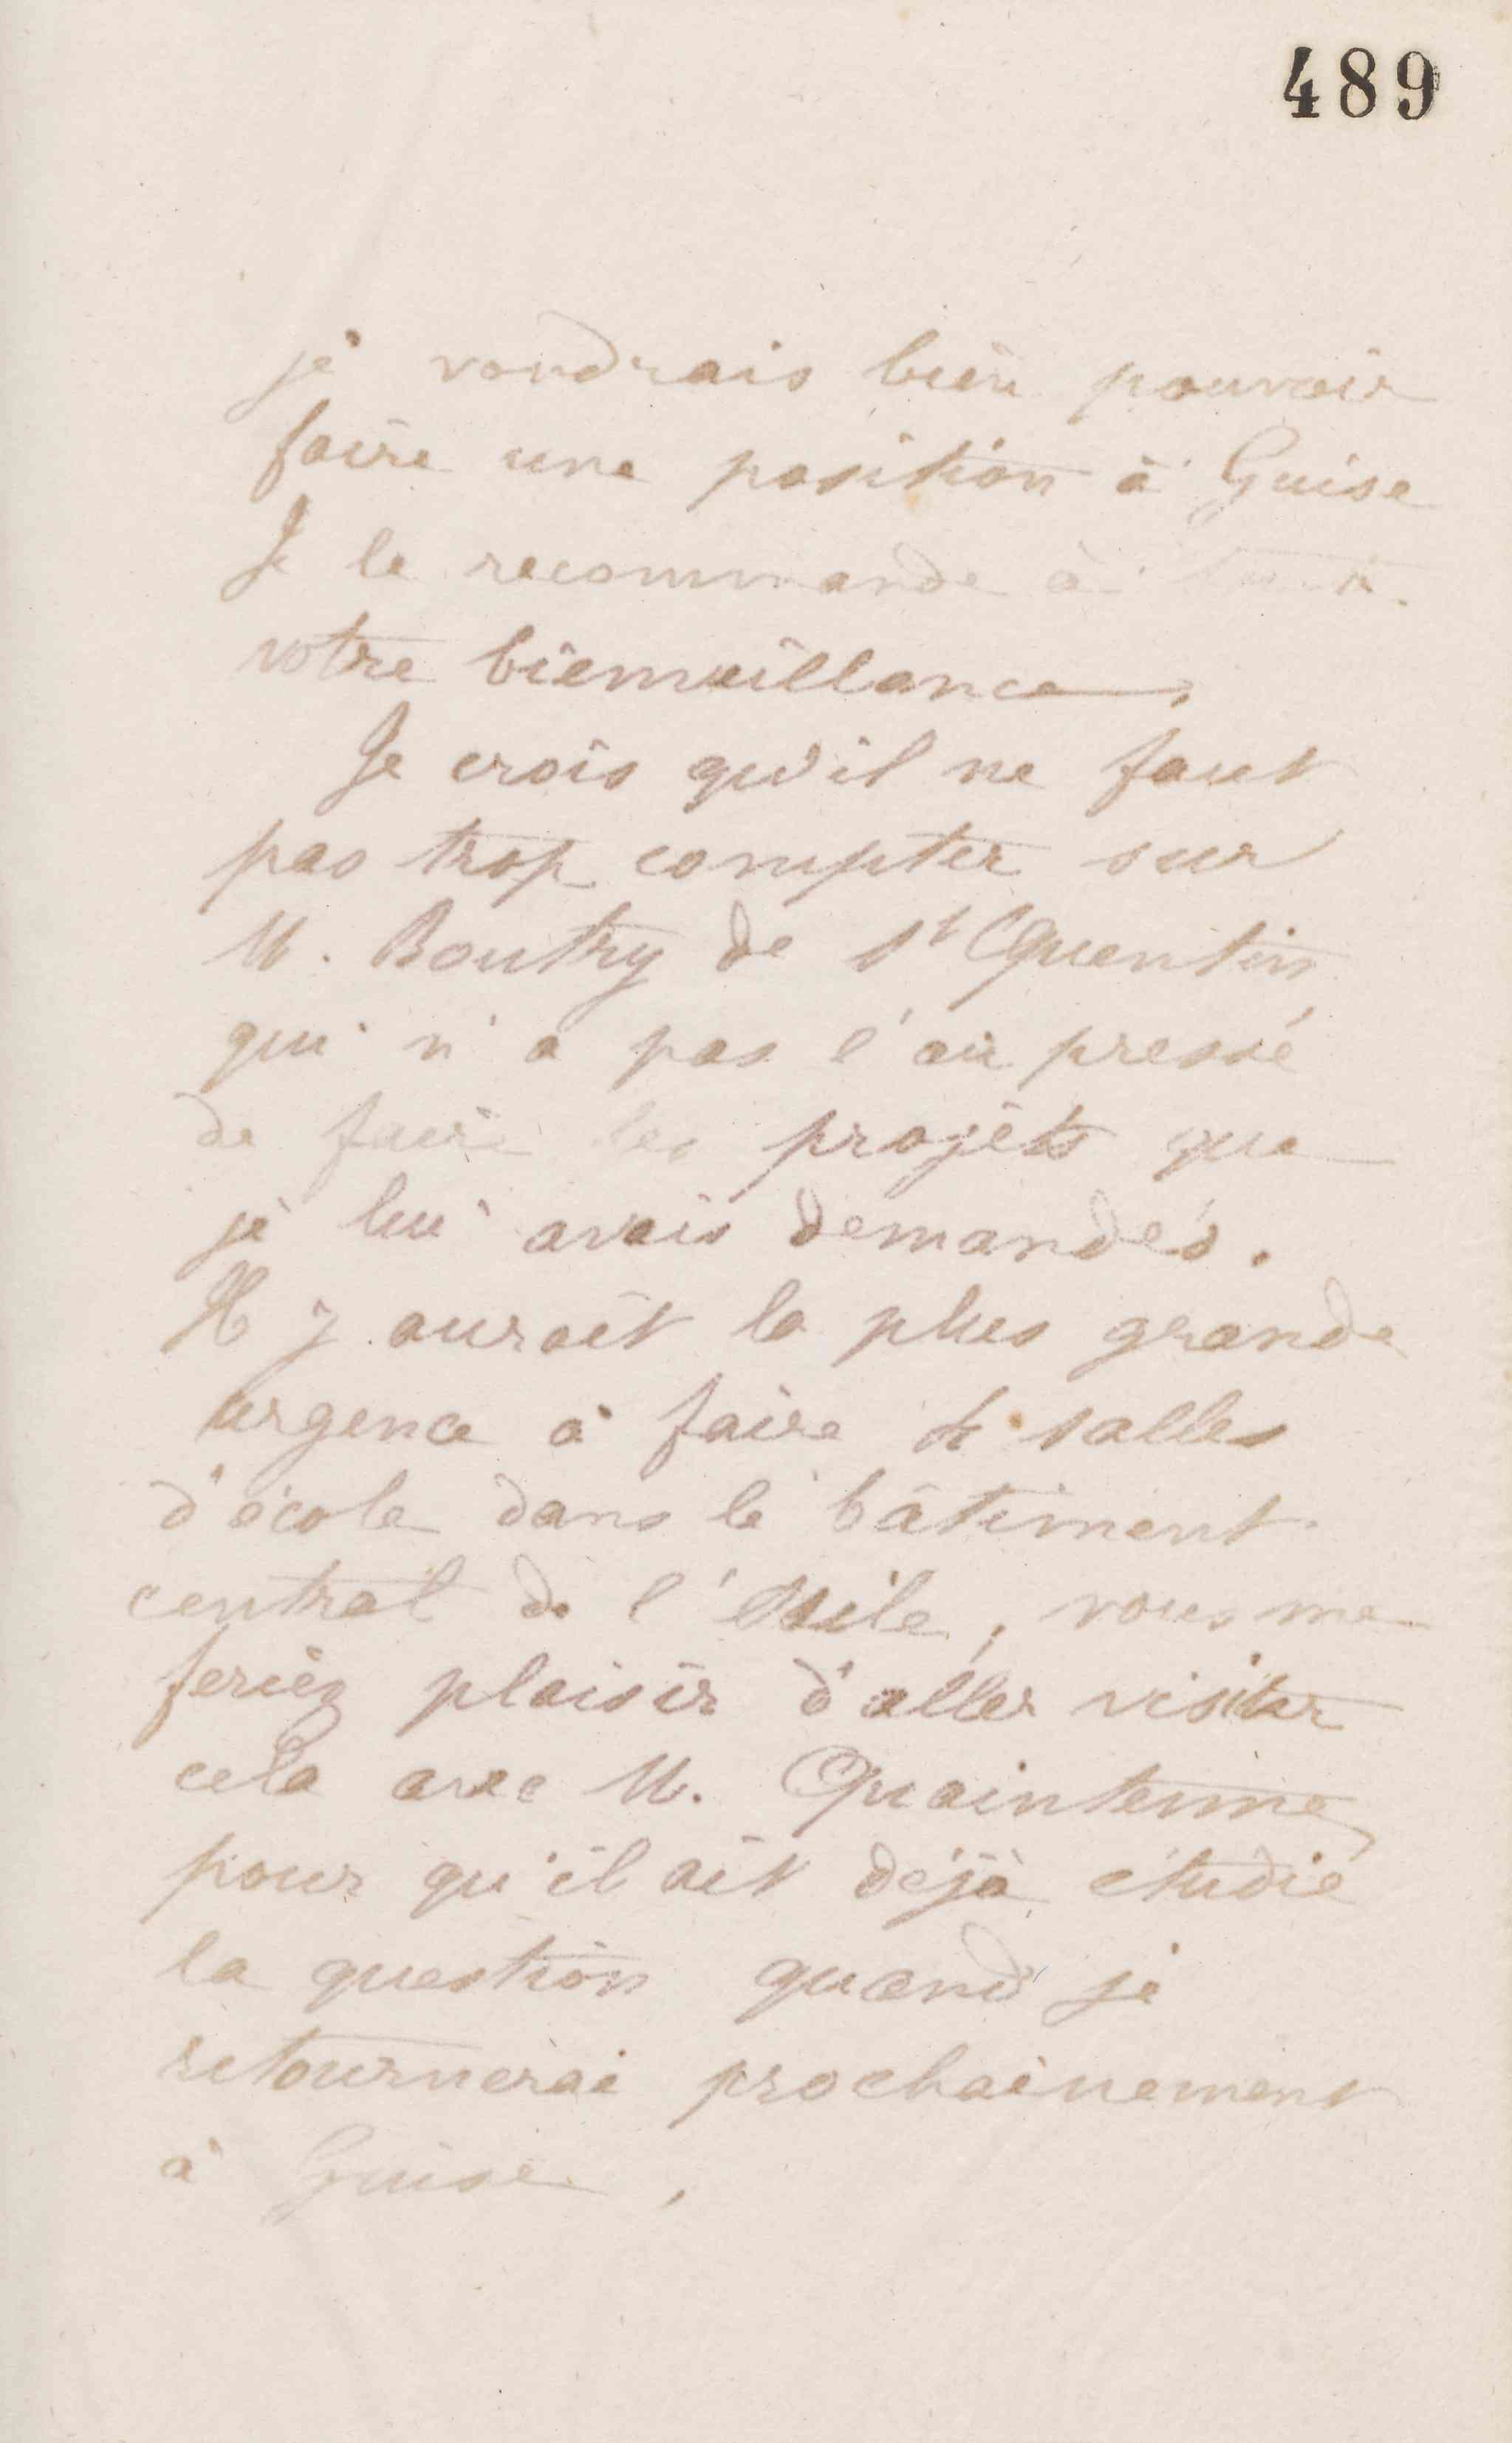 489
je voudrais bien pouvoir
faire une position à Guise
Je le recommande à toute
votre bienveillance.
Je crois qu'il ne faut
pas trop compter sur
M. Boutry de St Quentin
qui n'a pas l'air pressé
de faire les projets que
je lui avais demandés.
Il y aurait la plus grande
urgence à faire 4 salles
d'école dans le bâtiment
central de l'asile, vous me
feriez plaisir d'aller visiter
cela avec M. Quaintenne
pour qu'il ait déjà étudié
la question quand je
retournerai prochainement
à Guise.